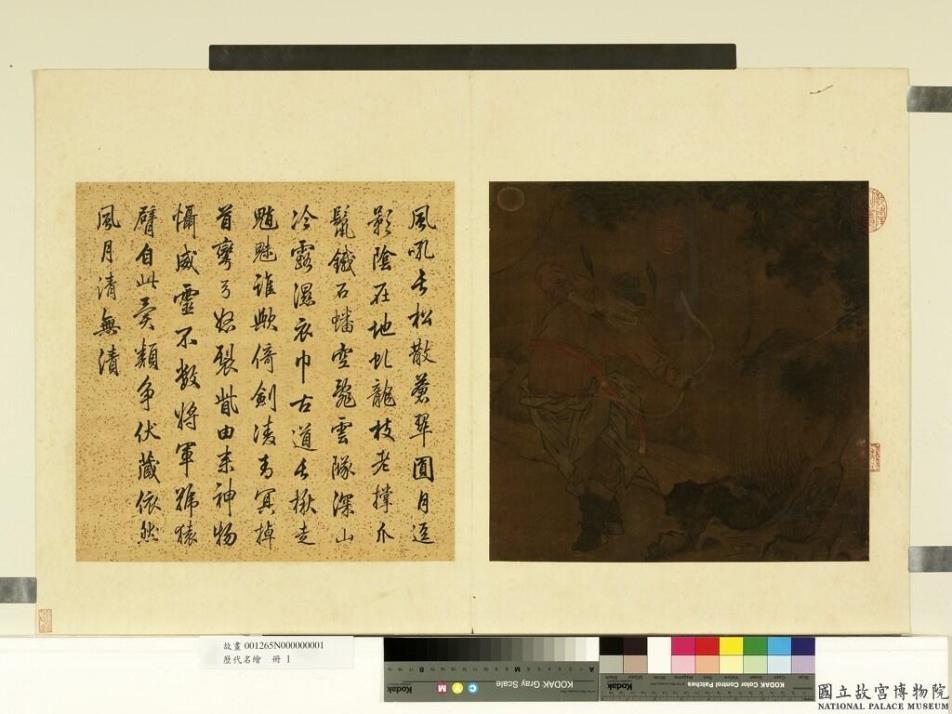 風吼長松散蒼翠圓月逗
影陰在地虬龍枝老撐爪
鬣鐵石蟠空飛雲隊深山
冷露濕衣巾古道長楸走
魑魅誰歟倚劍凌青冥掉
首彎弓怒裂眥由来神物
懾威靈不數將軍號猿
臂自此異類争伏藏依然
風月清無漬
故畫 001265N000000001
歷代名繪 冊 1
Kodak
C Y M
KODAK Gray Scale
Kodak
KODAK Color Control Patches
國立故宮博物院
NATIONAL PALACE MUSEUM